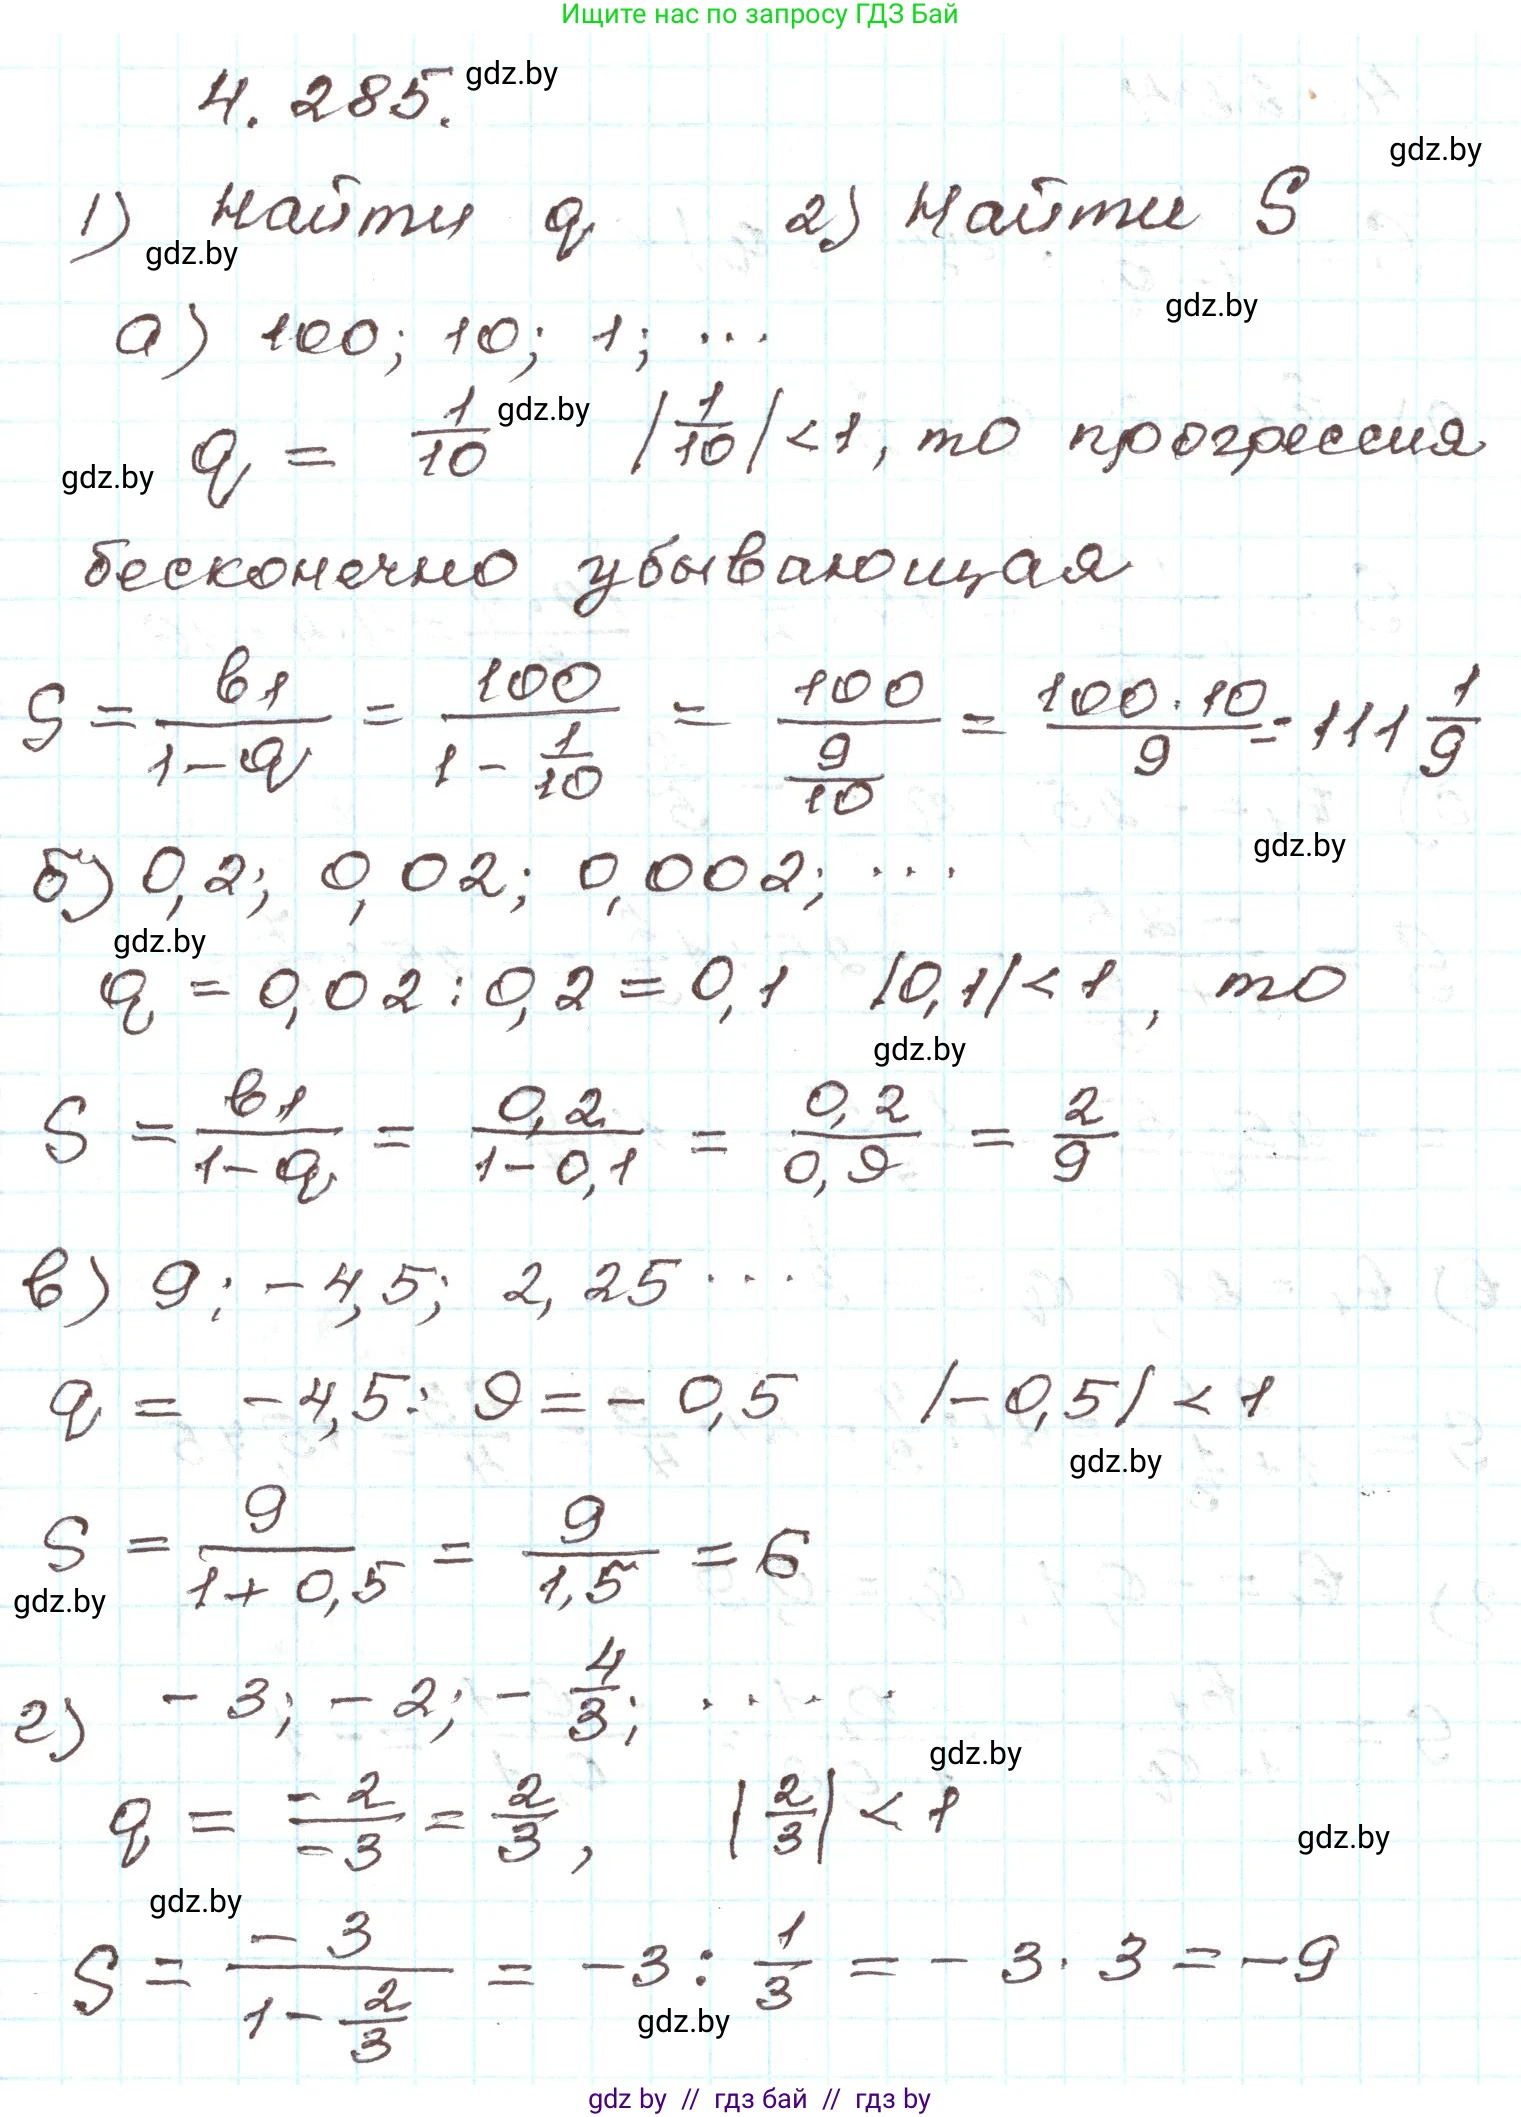 Ищите нас по запросу ГДЗ Бай
4.285. gdz.by
gdz.by
1) Найти q 2) Найти S
gdz.by
gdz.by
а) 100; 10; 1; ...
q = 1/10 gdz.by |1/10| < 1, то прогрессия
gdz.by
бесконечно убывающая
S = b1/(1-q) = 100/(1 - 1/10) = 100/(9/10) = 100·10/9 = 111 1/9
gdz.by
б) 0,2; 0,02; 0,002; ...
gdz.by
q = 0,02 : 0,2 = 0,1 |0,1| < 1, то
gdz.by
S = b1/(1-q) = 0,2/(1-0,1) = 0,2/0,9 = 2/9
в) 9; -4,5; 2,25 ...
q = -4,5 : 9 = -0,5 |-0,5| < 1
gdz.by
S = 9/(1+0,5) = 9/1,5 = 6
gdz.by
г) -3; -2; -4/3; ....
gdz.by
q = -2/-3 = 2/3, |2/3| < 1
gdz.by
gdz.by
S = -3/(1 - 2/3) = -3 : 1/3 = -3 · 3 = -9
gdz.by
gdz by // гдз бай // гдз by